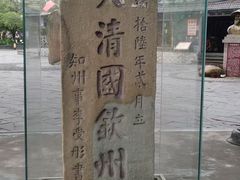 緒拾陸年貳月立
大清國欽州
知州事李受彤書